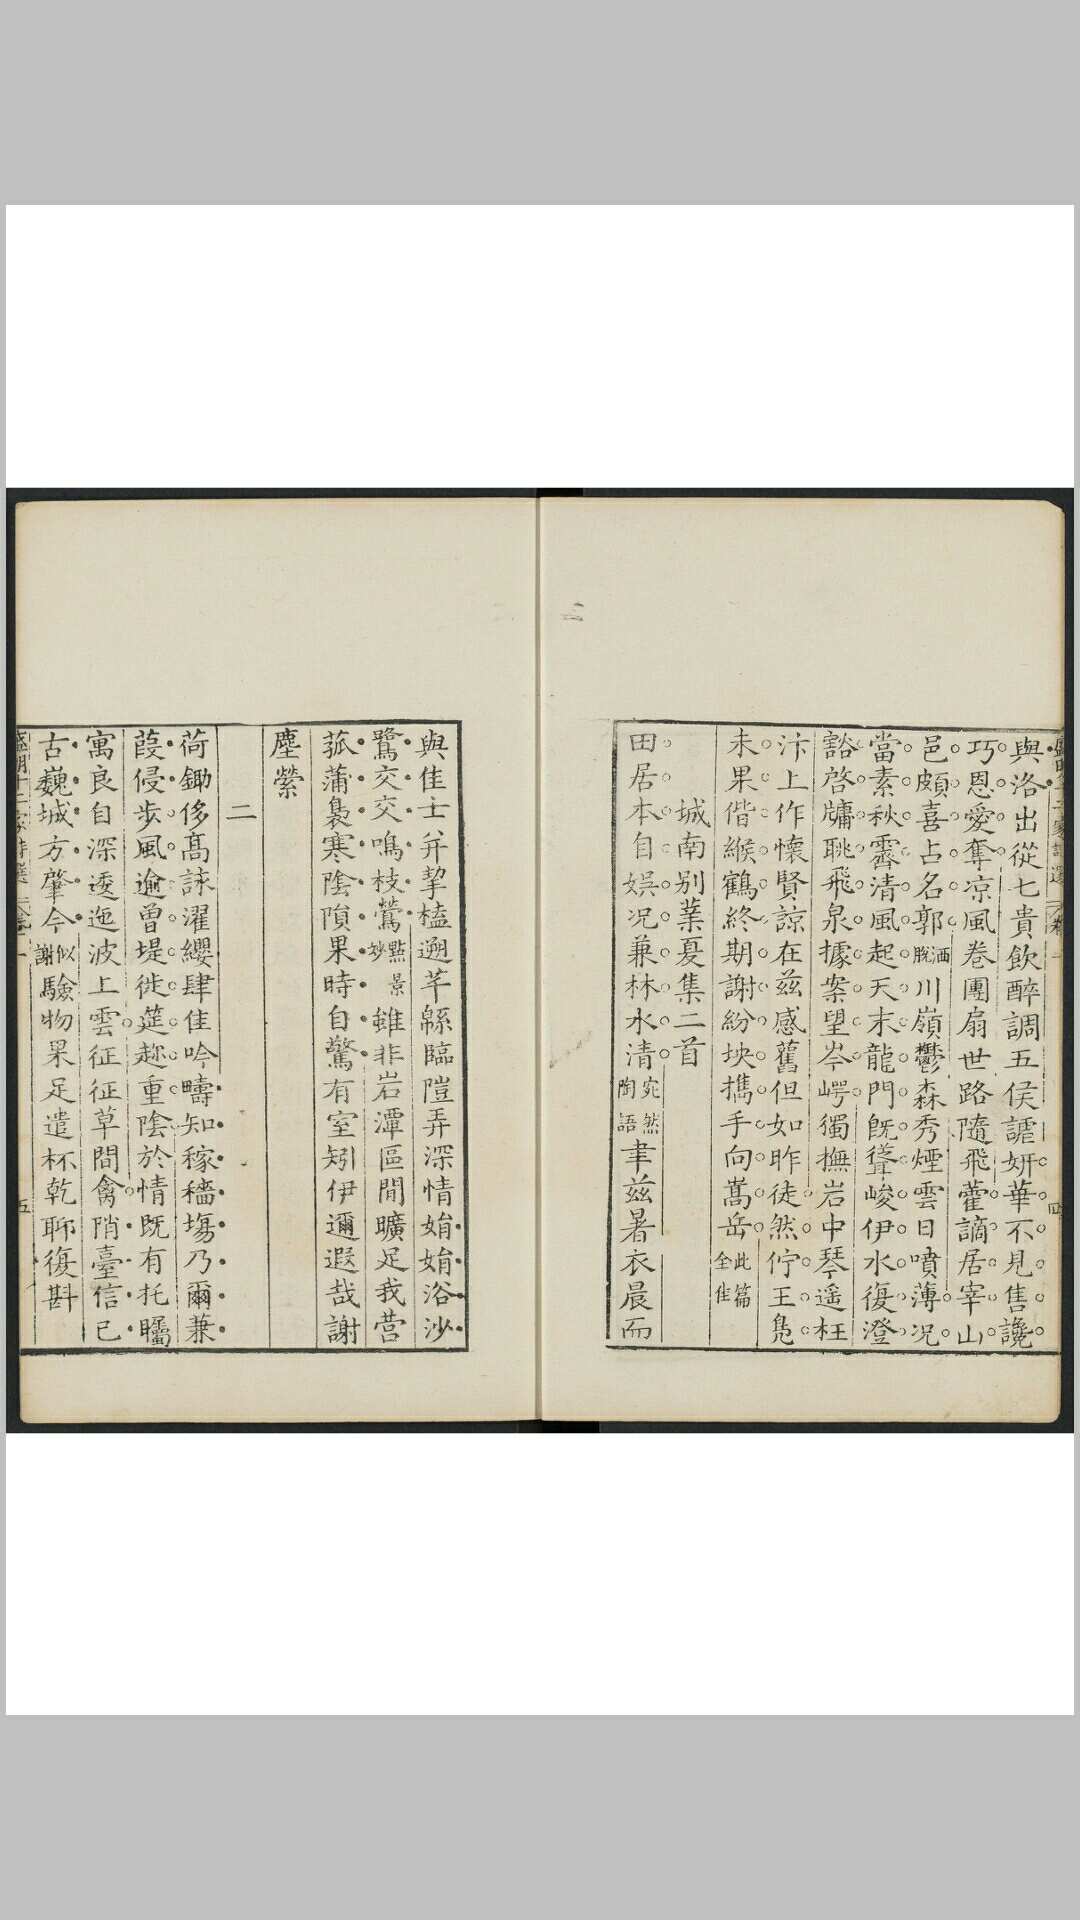 與洛出從七貴飲醉調五侯謔妍華不見售讒
巧恩愛奪凉風卷團扇世路隨飛藿謫居宰山
邑頗喜占名郭洒脫川嶺鬱森秀煙雲日噴薄况
當素秋霽清風起天末龍門旣聳峻伊水復澄
豁啓牖眺飛泉據案望岑崿獨撫岩中琴遥枉
汴上作懷賢諒在茲感舊但如昨徒然佇王凫
未果偕緱鶴終期謝紛坱攜手向嵩岳此篇全佳
城南别業夏集二首
田居本自娯况兼林水清宛然陶語聿茲暑衣晨而
四
與佳士并挈榼遡芊緜臨隑弄深情娟娟浴沙
鷺交交鳴枝鶯點景妙雖非岩潭區閒曠足我营
菰蒲裊寒陰隕果時自驚有室矧伊邇遐哉謝
塵縈
二
荷鋤侈髙詠濯纓肆佳吟疇知稼穡塲乃爾兼
葭侵步風逾曾堤徙筵趂重陰於情既有托矚
寓良自深逶迤波上雲征征草間禽陗臺信已
古巍城方肇今似謝驗物果足遣杯乾聊復斟
五